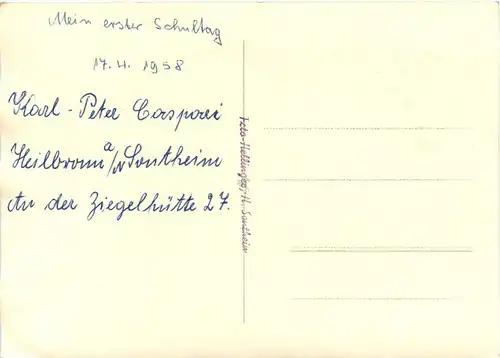 Mein erster Schultag
17. 4. 1958
Karl - Peter Caspari
Heilbronn a/N Sontheim
An der Ziegelhütte 27.
Foto-Hellinger, H. Sontheim